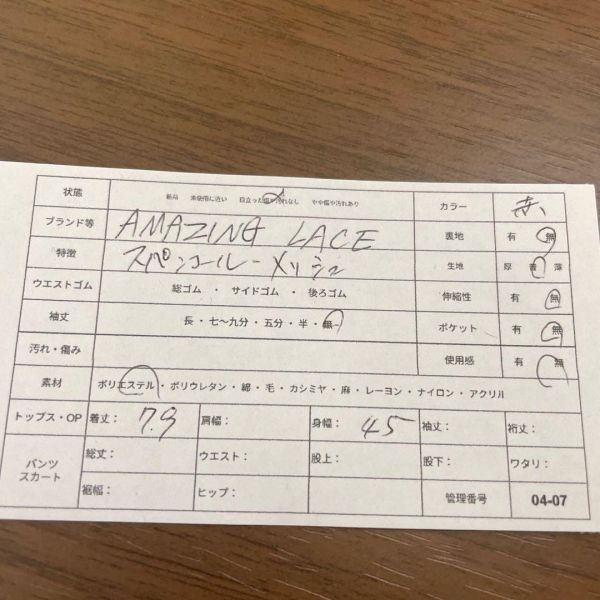 状態 新品 未使用に近い 目立った傷や汚れなし やや傷や汚れあり カラー 赤
ブランド等 AMAZING LACE 裏地 有 無
特徴 スパンコール メッシュ 生地 厚 普 薄
ウエストゴム 総ゴム ・ サイドゴム ・ 後ろゴム 伸縮性 有 無
袖丈 長・七〜九分・五分・半・無 ポケット 有 無
汚れ・傷み 使用感 有 無
素材 ポリエステル・ポリウレタン・綿・毛・カシミヤ・麻・レーヨン・ナイロン・アクリル
トップス・OP 着丈: 79 肩幅: 身幅: 45 袖丈: 裄丈:
パンツ スカート 総丈: ウエスト: 股上: 股下: ワタリ:
裾幅: ヒップ: 管理番号 04-07